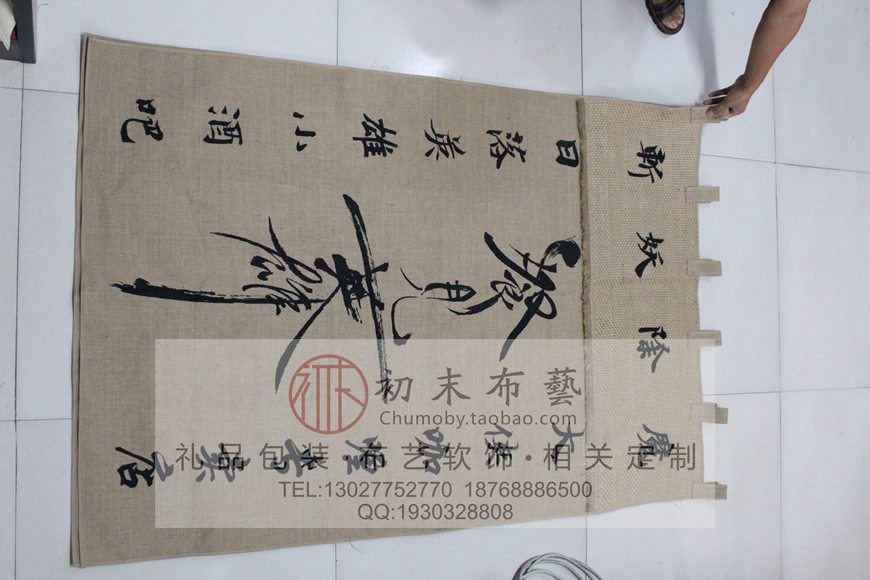 斬妖除魔
日落英雄小酒吧
見英雄
初末布藝
Chumoby.taobao.com
礼品包装·布艺软饰·相关定制
TEL:13027752770 18768886500
QQ:1930328808